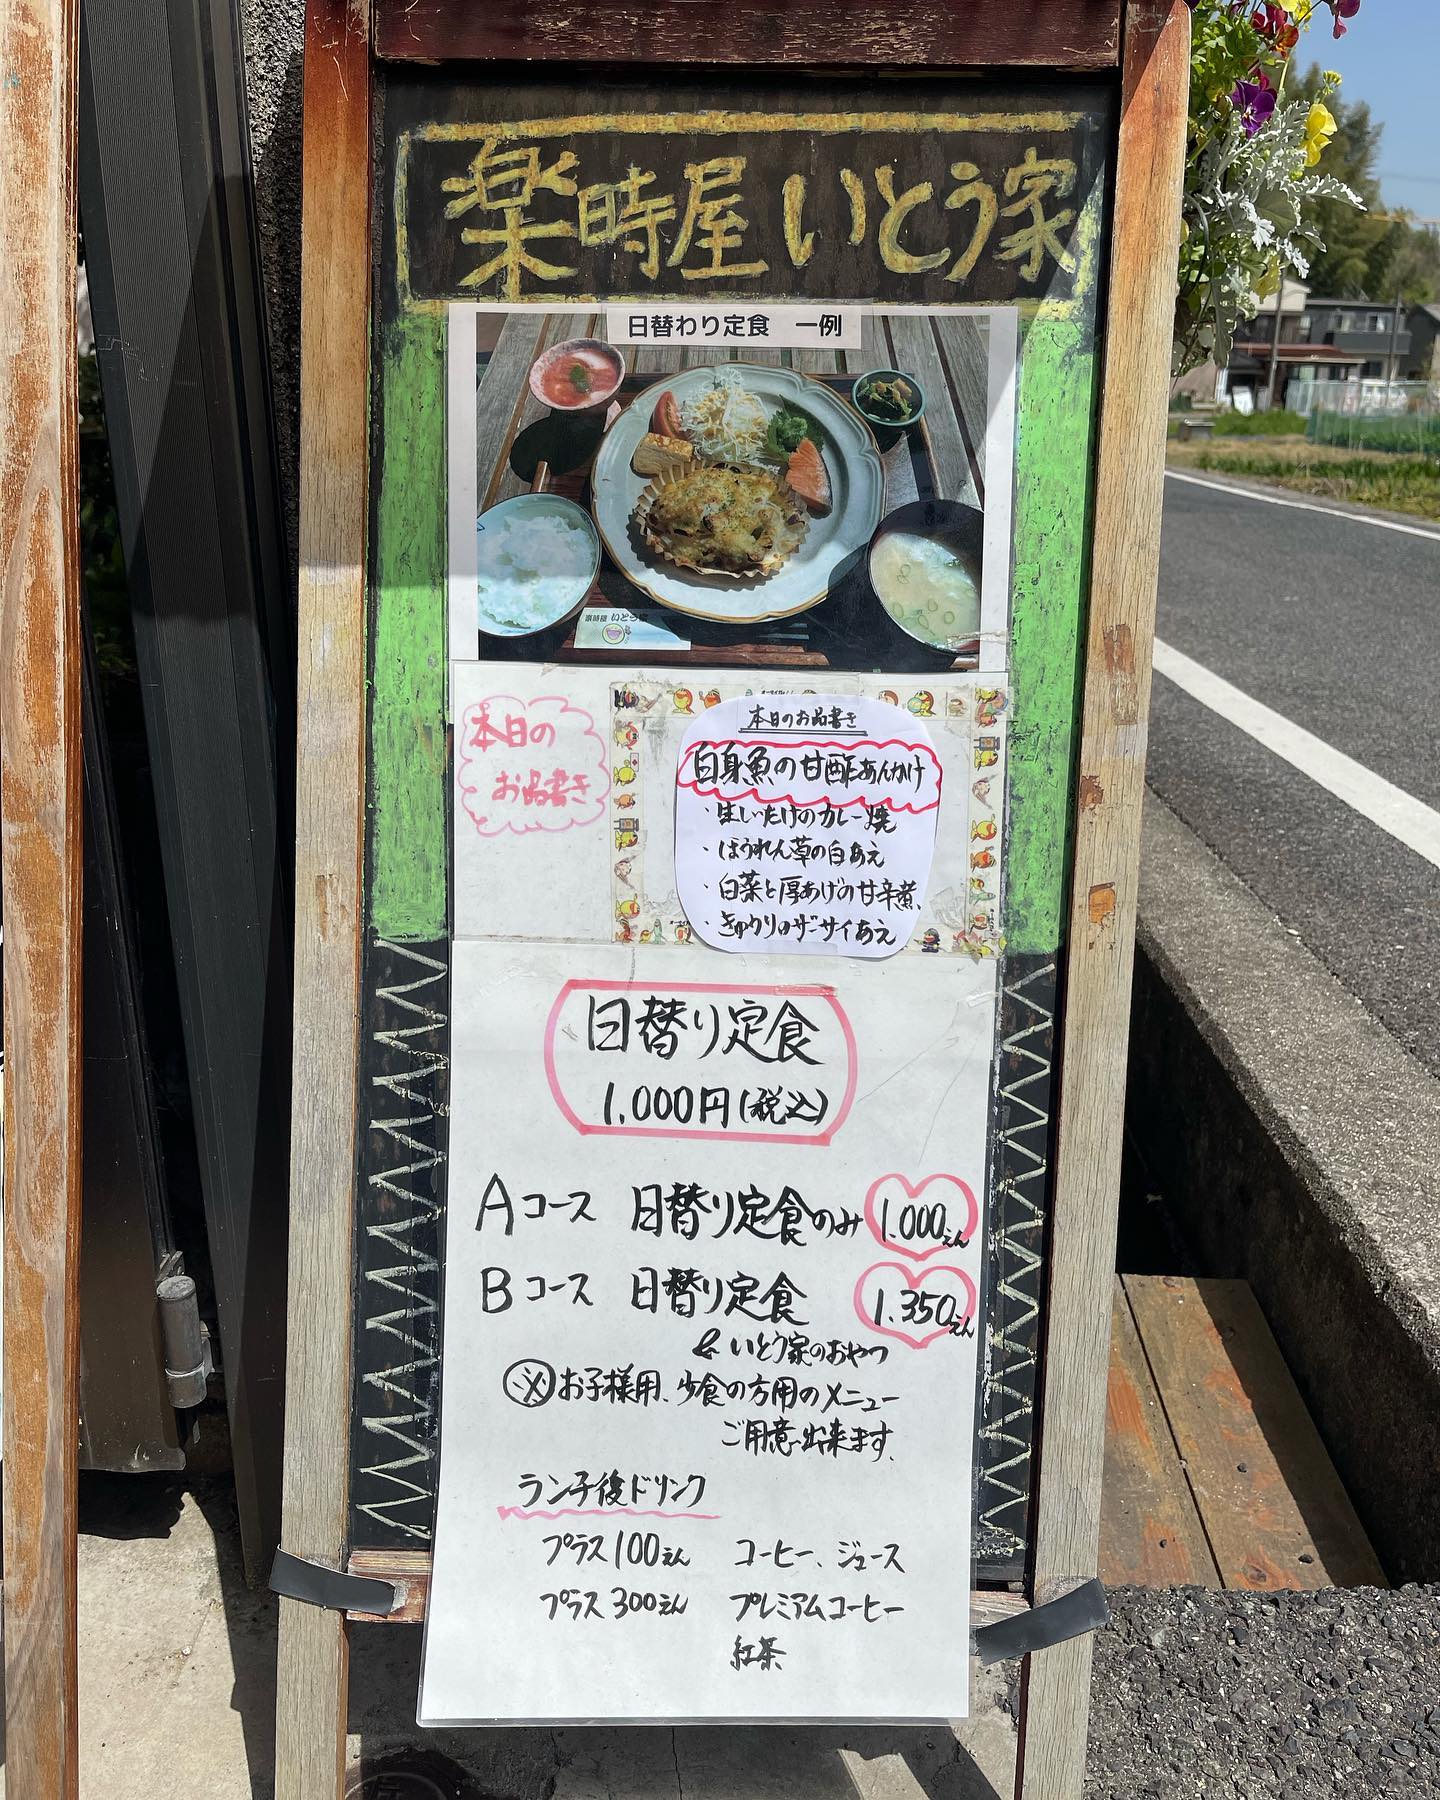 楽時屋 いとう家
日替わり定食 一例
楽時屋 いとう家
本日の
お品書き
本日のお品書き
白身魚の甘酢あんかけ
・生しいたけのカレー焼
・ほうれん草の白あえ
・白菜と厚あげの甘辛煮、
・きゅうりのザーサイあえ
日替り定食
1.000円(税込)
Aコース 日替り定食のみ 1.000えん
Bコース 日替り定食 1.350えん
& いとう家のおやつ
※お子様用、少食の方用のメニュー
ご用意出来ます。
ランチ後ドリンク
プラス100えん コーヒー、ジュース
プラス300えん プレミアムコーヒー
紅茶